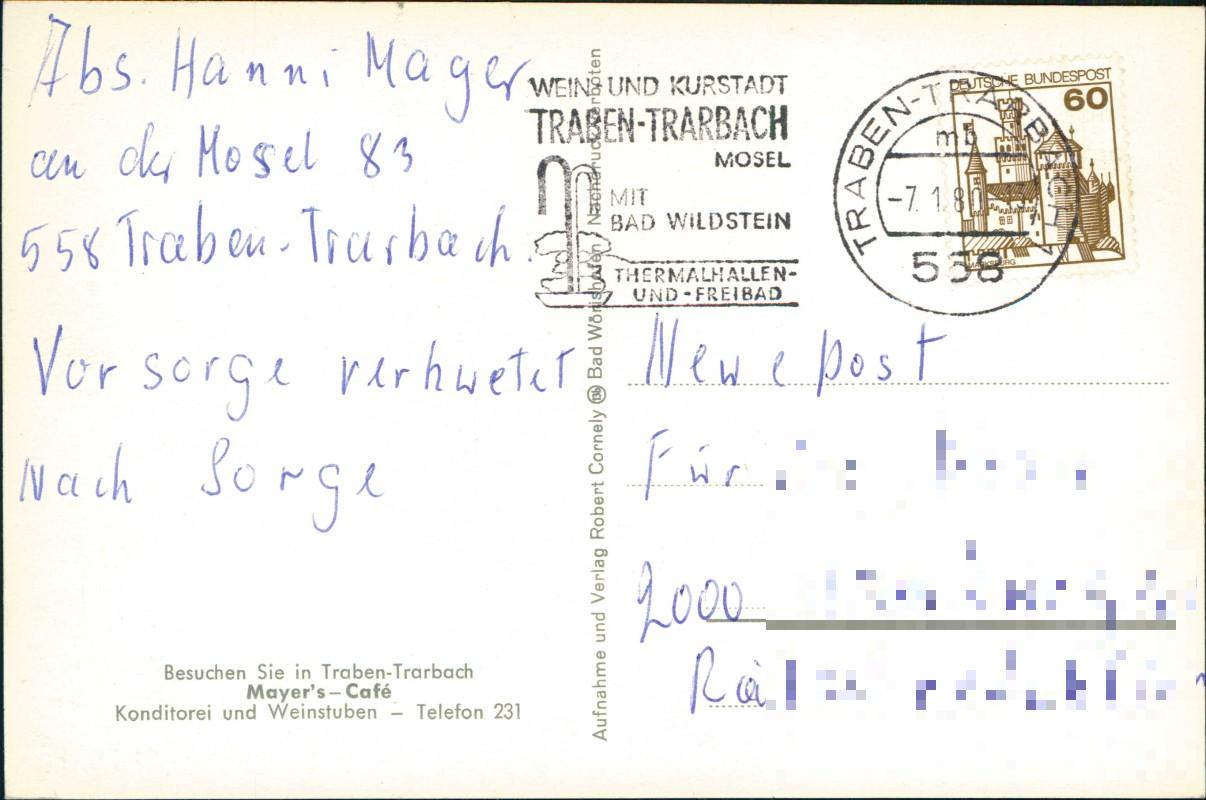 Abs. Hanni Mager
an der Mosel 83
558 Traben-Trarbach.
Vorsorge verhuetet
nach Sorge
Besuchen Sie in Traben-Trarbach
Mayer's – Café
Konditorei und Weinstuben – Telefon 231
Aufnahme und Verlag Robert Cornely Bad Wörishofen / Nachdruck verboten
WEIN- UND KURSTADT
TRABEN-TRARBACH
MOSEL
MIT
BAD WILDSTEIN
THERMALHALLEN-
UND-FREIBAD
TRABEN-TRARBACH 1
mb
-7.1.80
558
DEUTSCHE BUNDESPOST
60
MARKSBURG
Newe post
Für
2000